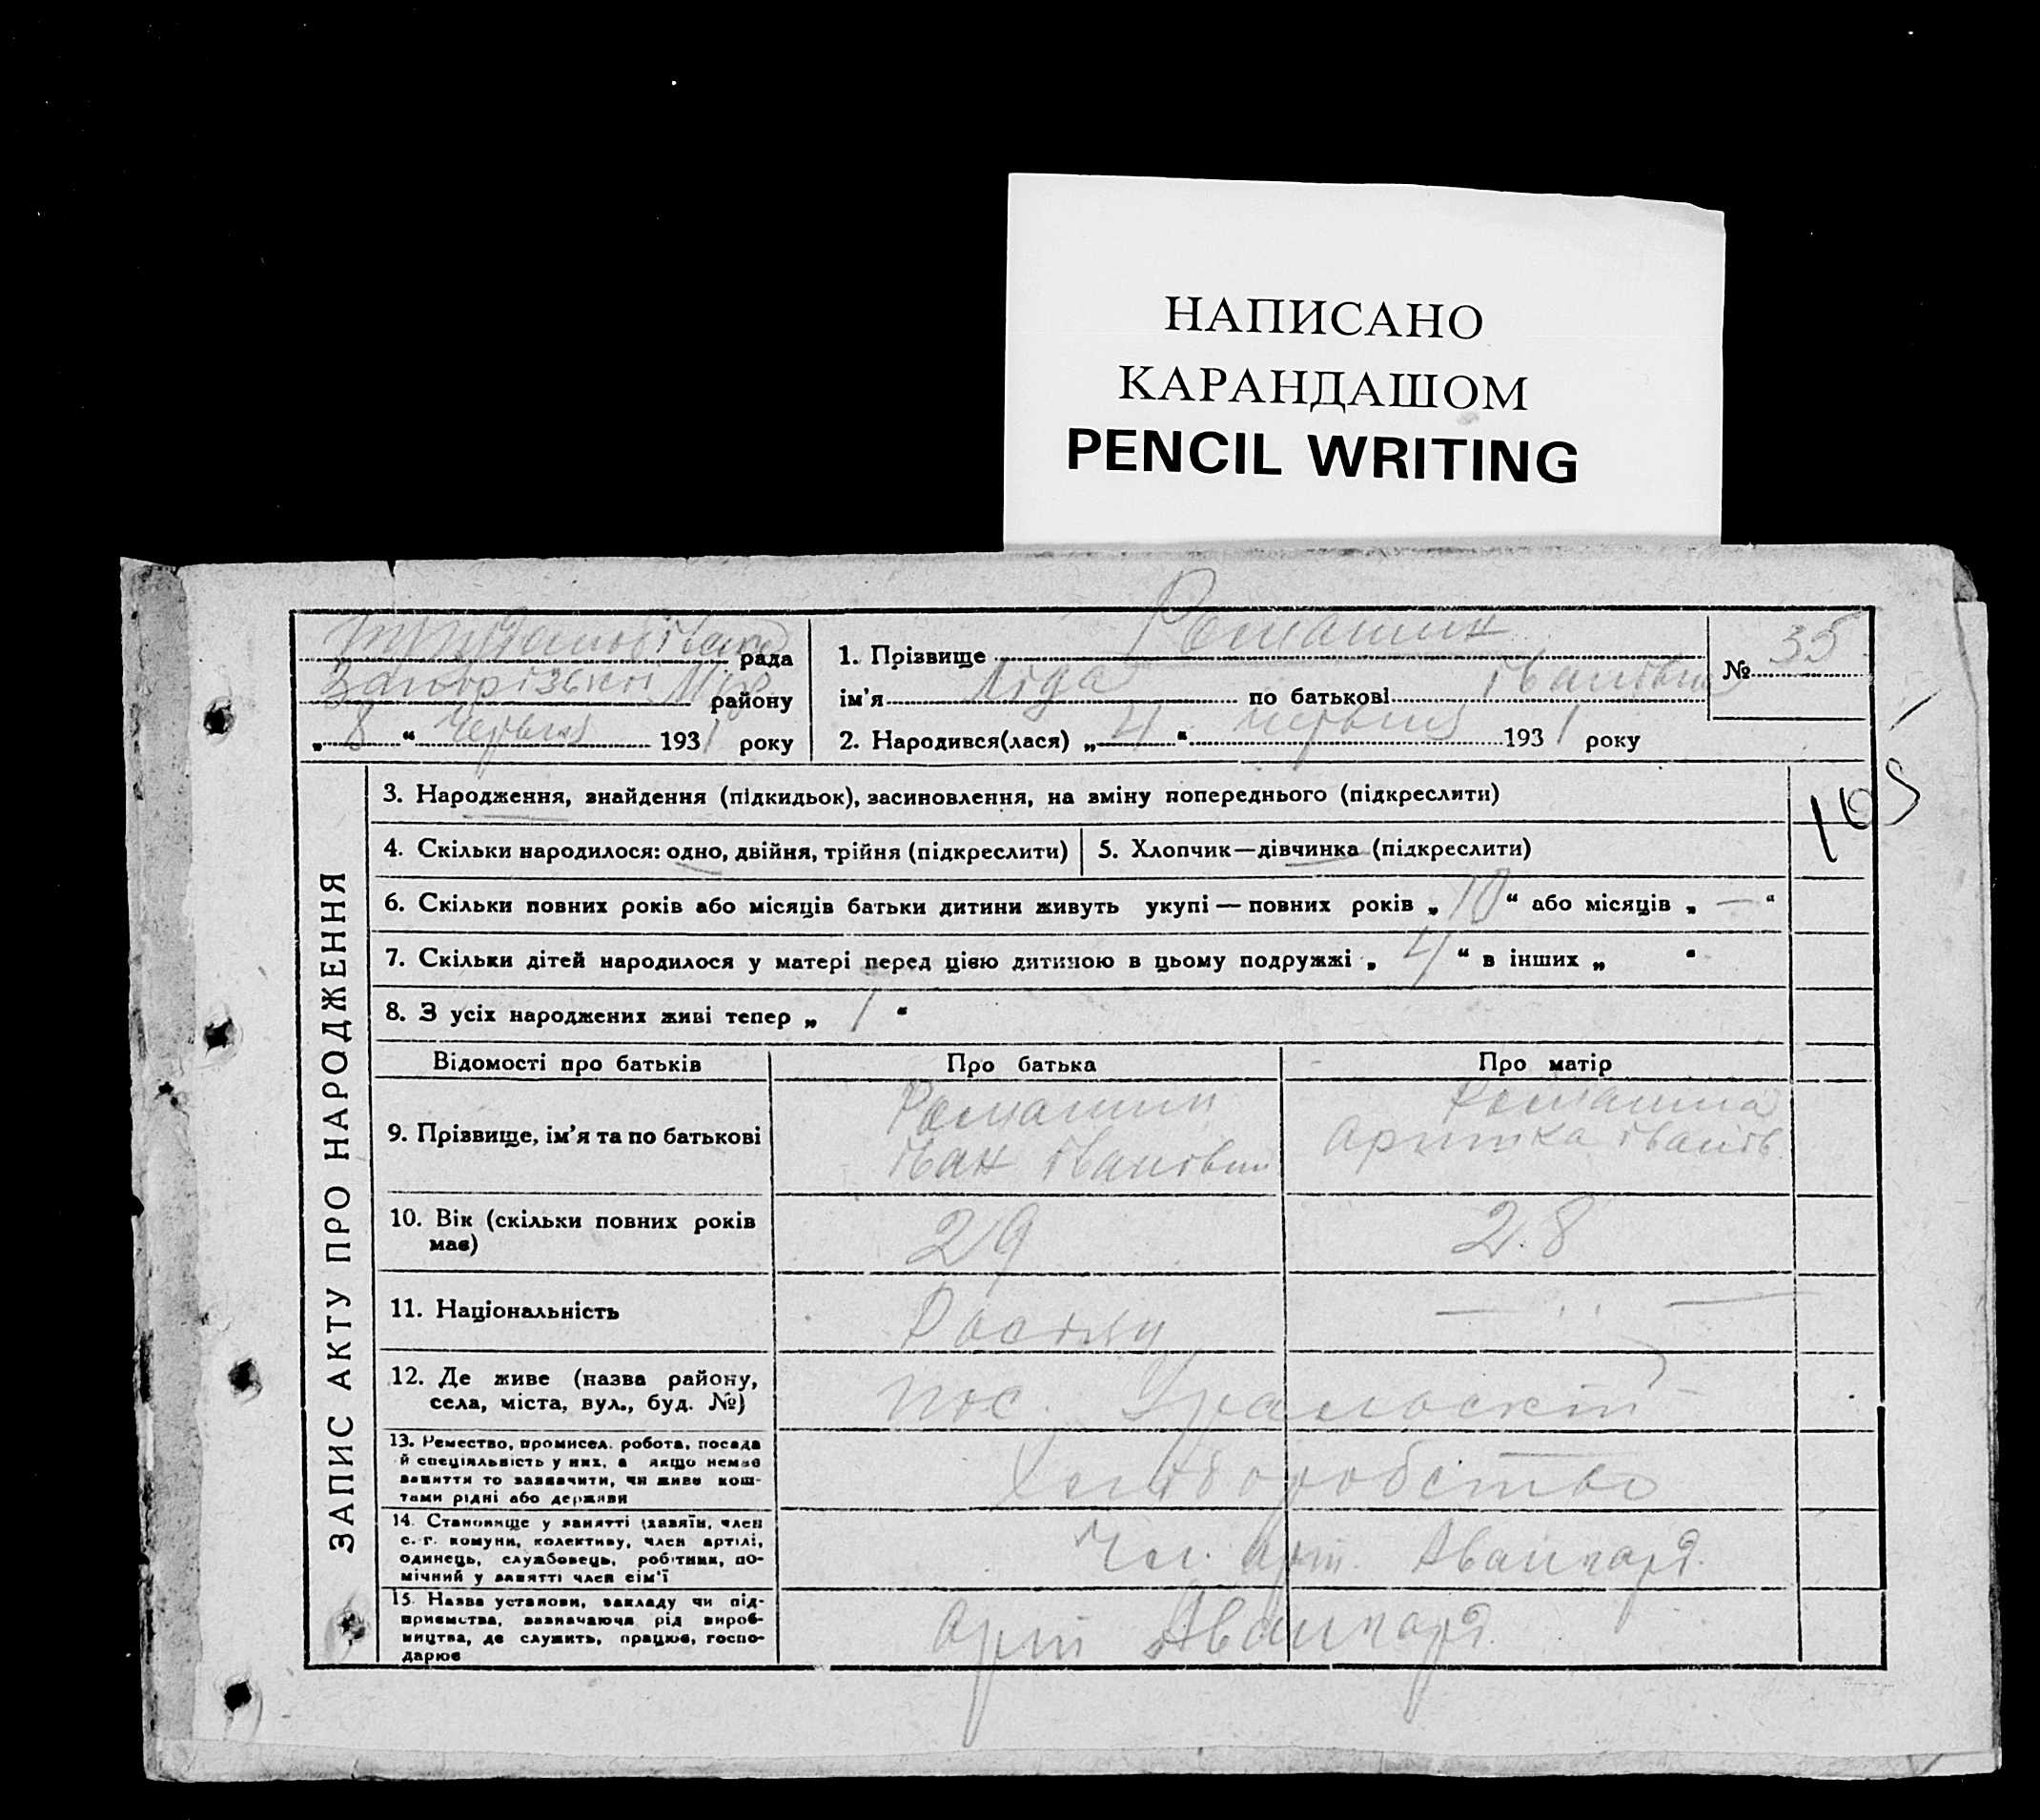 НАПИСАНО
КАРАНДАШОМ
PENCIL WRITING
рада
району
„ 8 “ Червня 1931 року
1. Прізвище Ромашин
№ 35
ім'я Ліда по батькові Іванівна
2. Народився(лася) „ 4 “ червня 1931 року
105
ЗАПИС АКТУ ПРО НАРОДЖЕННЯ
3. Народження, знайдення (підкидьок), засиновлення, на зміну попереднього (підкреслити)
4. Скільки народилося: одно, двійня, трійня (підкреслити)
5. Хлопчик—дівчинка (підкреслити)
6. Скільки повних років або місяців батьки дитини живуть укупі — повних років „ 10 “ або місяців „ — “
7. Скільки дітей народилося у матері перед цією дитиною в цьому подружжі „ 4 “ в інших „ “
8. З усіх народжених живі тепер „ 1 “
Відомості про батьків
Про батька
Про матір
9. Прізвище, ім'я та по батькові
Ромашин
Іван Іванович
Ромашина
Іванів
10. Вік (скільки повних років
має)
29
28
11. Національність
— „ —
12. Де живе (назва району,
села, міста, вул., буд. №)
пос.
13. Ремество, промисел, робота, посада
й спеціяльність у них, а якщо немає
заняття то зазначити, чи живе кош-
тами рідні або держави
Хліборобство
14. Становище у занятті (хазяїн, член
с.-г. комуни, колективу, член артілі,
одинець, службовець, робітник, по-
мічний у занятті член сім'ї
Чл. арт. Авангард.
15. Назва установи, закладу чи під-
приємства, зазначаюча рід вироб-
ництва, де служить, працює, госпо-
дарює
Арт Авангард.